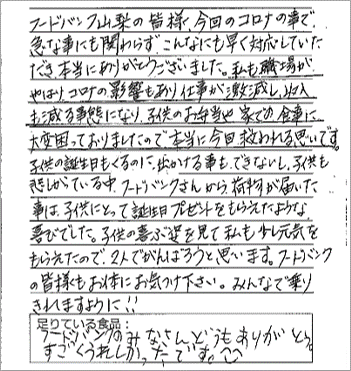 フードバンク山梨の皆様、今回のコロナの事で
急な事にも関わらず、こんなにも早く対応していた
だき本当にありがとうございました。私も職場が
やはりコロナの影響もあり仕事が激減し、収入
も減る事態になり、子供のお弁当や家での食事に
大変困っておりましたので本当に今回救われる思いです。
子供の誕生日もくるのに、出かける事もできないし、子供も
悲しがている中フードバンクさんから荷物が届いた
事は、子供にとって誕生日プレゼントをもらえたような
喜びでした。子供の喜ぶ姿を見て私も少し元気を
もらえたので、2人でがんばろうと思います。フードバンク
の皆様もお体にお気をつけ下さい。みんなで乗り
きれますように!!
足りている食品:
フードバンクのみなさんどうもありがとう。
すごくうれしかったです。